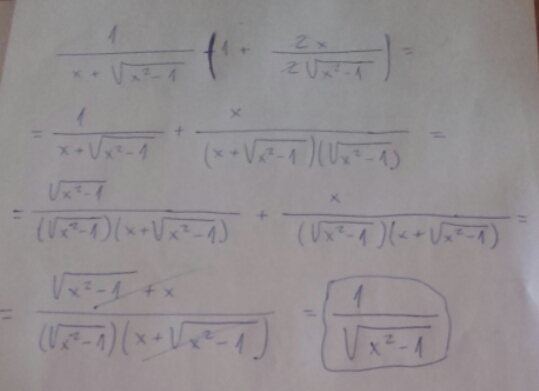 \frac{1}{x+\sqrt{x^2-1}} \left(1+\frac{2x}{2\sqrt{x^2-1}}\right) =
= \frac{1}{x+\sqrt{x^2-1}} + \frac{x}{(x+\sqrt{x^2-1})(\sqrt{x^2-1})} =
= \frac{\sqrt{x^2-1}}{(\sqrt{x^2-1})(x+\sqrt{x^2-1})} + \frac{x}{(\sqrt{x^2-1})(x+\sqrt{x^2-1})} =
= \frac{\sqrt{x^2-1}+x}{(\sqrt{x^2-1})(x+\sqrt{x^2-1})} = \frac{1}{\sqrt{x^2-1}}